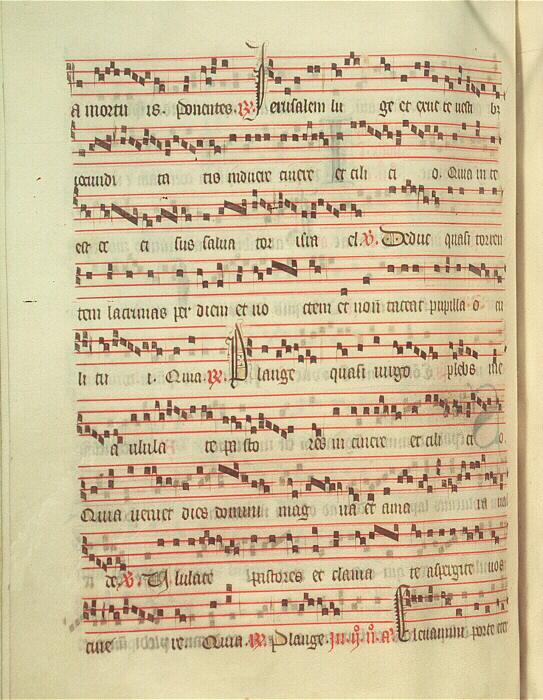 A mortu is. ponentes. R. Jerusalem lu ge et exue te vesti bus
jocundi ta tis induere cinere et cili ci o. Quia in te
est oc ci sus salva tor isra el. V. Deduc quasi torren
tem lacrimas per diem et no ctem et non taceat pupilla o cu
li tu i. Quia. R. Plange quasi virgo plebs me
a ulula te pasto res in cinere et cili ci o.
Quia veniet dies domini mag na et ama ra val
de. V. Ululate pastores et clama te aspergite vos
cine re. Quia. R. Plange. in iii. n. a. Elevamini porte eter